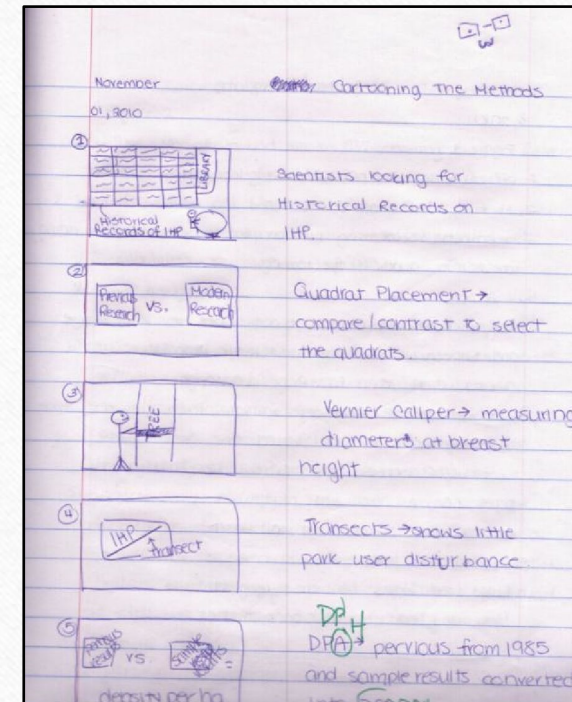 November
Cartooning The Methods
01, 2010
①
LIBRARY
Historical
Records of IHP
Scientists looking for
Historical Records on
IHP.
②
Previous
Research
vs.
Modern
Research
Quadrat Placement →
compare/contrast to select
the quadrats.
③
TREE
Vernier Caliper → measuring
diameters at breast
height
④
IHP
transect
Transects → shows little
park user disturbance.
⑤
previous
results
vs.
sample
results
=
density per ha
DPH
DPA → pervious from 1985
and sample results converted
into